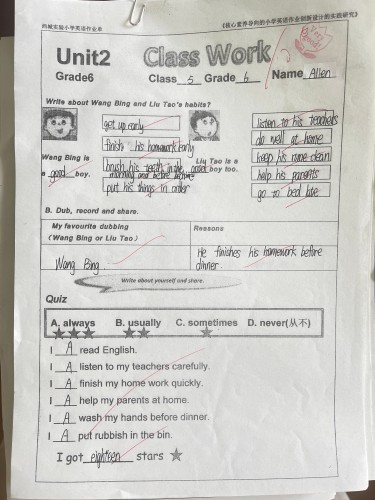 西城实验小学英语作业单 《核心素养导向的小学英语作业创新设计的实践研究》
Unit2 Class Work
Grade6 Class 5 Grade 6 Name Allen
Write about Wang Bing and Liu Tao's habits?
get up early
finish his homework early
brush his teeth in the
morning and before
put his things in order
Wang Bing is
a good boy.
listen to his teachers
do well at home
keep his room clean
help his parents
go to bed late
Liu Tao is a
good boy too.
B. Dub, record and share.
My favourite dubbing
(Wang Bing or Liu Tao)
Reasons
Wang Bing
He finishes his homework before
dinner
Write about yourself and share.
Quiz
A. always B. usually C. sometimes D. never(从不)
I A read English.
I A listen to my teachers carefully.
I A finish my home work quickly.
I A help my parents at home.
I A wash my hands before dinner.
I A put rubbish in the bin.
I got eighteen stars